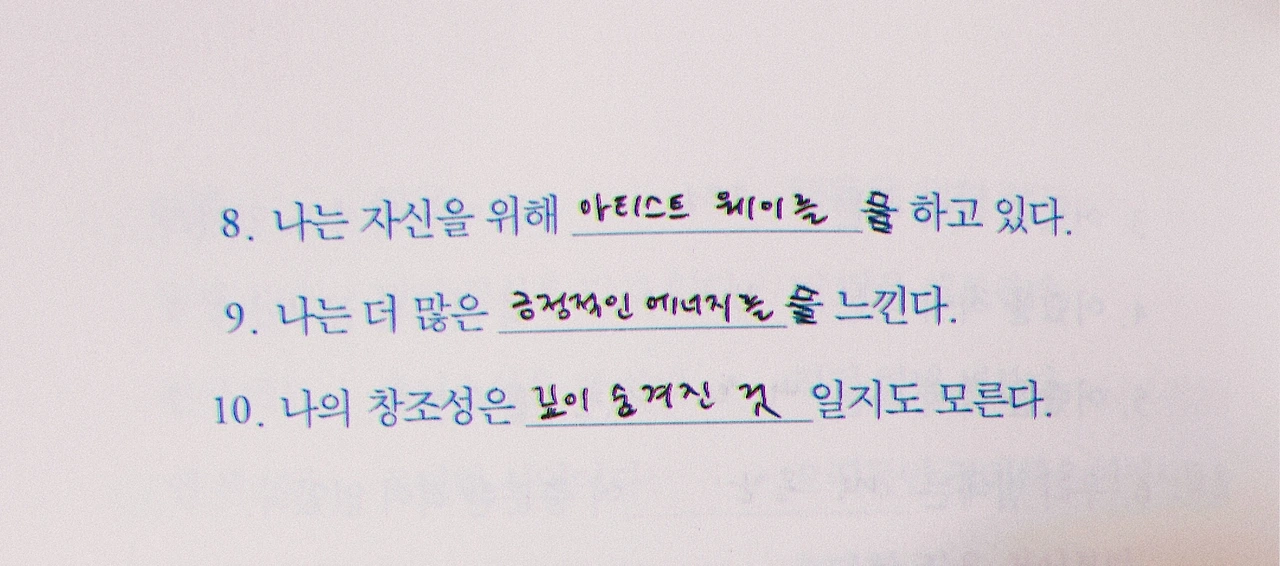 8. 나는 자신을 위해 아티스트 웨이를 하고 있다.
9. 나는 더 많은 긍정적인 에너지를 느낀다.
10. 나의 창조성은 깊이 숨겨진 것 일지도 모른다.